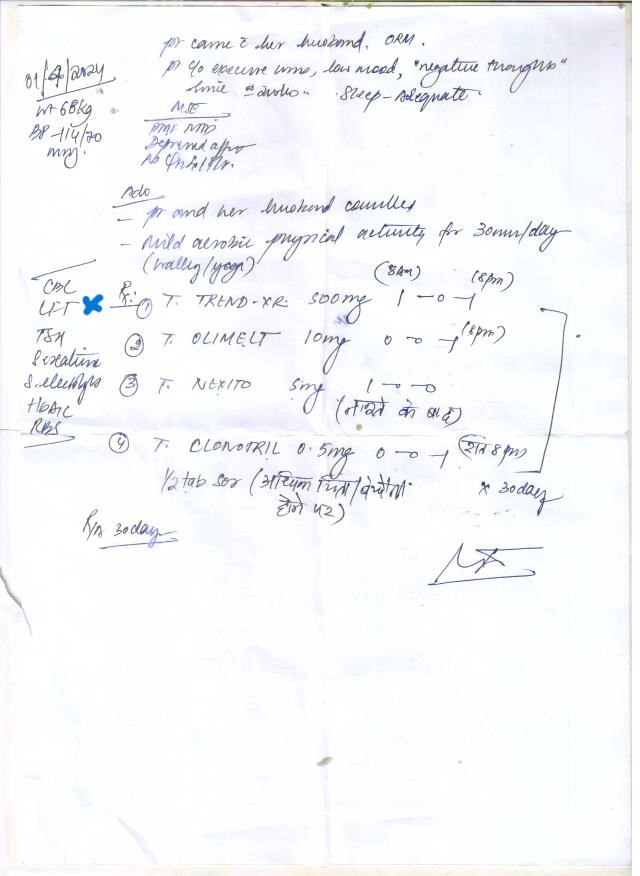 pt came c her husband. ORM.
pt c/o excessive worries, low mood, "negative thoughts"
since 2 weeks. Sleep - Adequate.
01/ /2024
wt 68kg
BP - 114/70
MSE
Depressed affect
Adv
- pt and her husband counselled
- mild aerobic physical activity for 30min/day
(walking/yoga)
CBC
LFT
TSH
S. creatinine
S. electrolytes
HbA1C
RBS
Rx.
(8Am) (8pm)
① T. TREND-XR 500mg 1 - 0 - 1
② T. OLIMELT 10mg 0 - 0 - 1 (8pm)
③ T. NEXITO 5mg 1 - 0 - 0
(नाश्ते के बाद)
④ T. CLONOTRIL 0.5mg 0 - 0 - 1 8pm
1/2 tab SOS (अधिक चिंता/बेचैनी
होने पर)
x 30days
R/A 30days